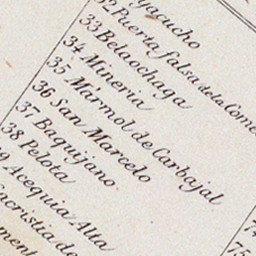 yacucho
32 Puerta falsa de la Come
33 Belaochaga
34 Mineria
35 Mármol de Carbajal
36 San Marcelo
37 Baquijano
38 Pelota
9 Acequia Alta
Sacristia de
74
75